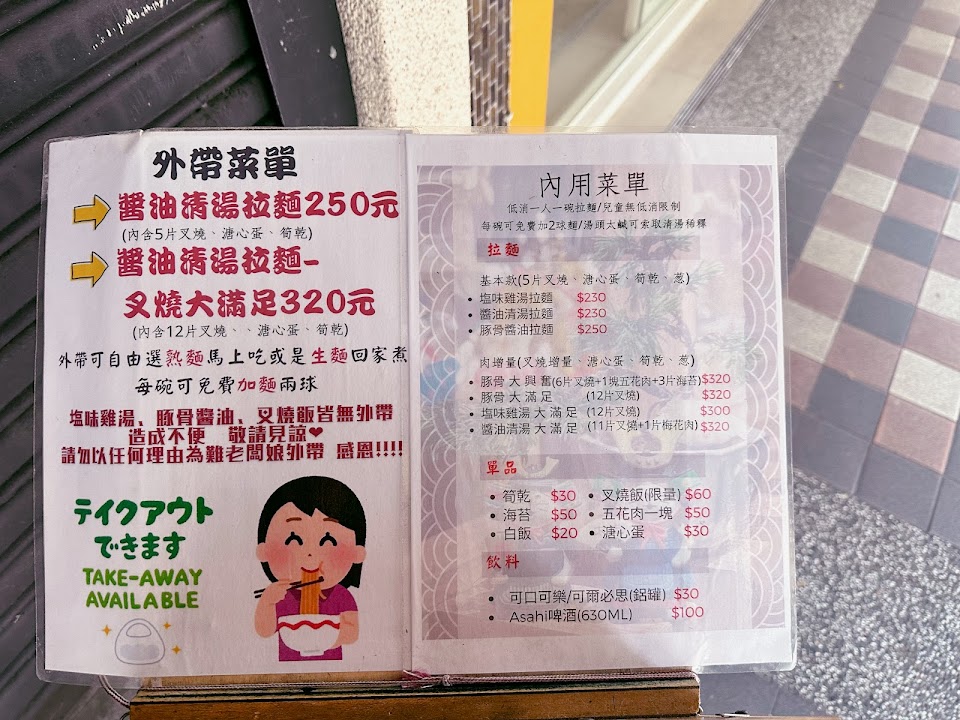 外帶菜單
醬油清湯拉麵250元
(內含5片叉燒、溏心蛋、筍乾)
醬油清湯拉麵-
叉燒大滿足320元
(內含12片叉燒、、溏心蛋、筍乾)
外帶可自由選熟麵馬上吃或是生麵回家煮
每碗可免費加麵兩球
塩味雞湯、豚骨醬油、叉燒飯皆無外帶
造成不便 敬請見諒❤
請勿以任何理由為難老闆娘外帶 感恩!!!!
テイクアウト
できます
TAKE-AWAY
AVAILABLE
內用菜單
低消一人一碗拉麵/兒童無低消限制
每碗可免費加2球麵/湯頭太鹹可索取清湯稀釋
拉麵
基本款(5片叉燒、溏心蛋、筍乾、蔥)
• 塩味雞湯拉麵 $230
• 醬油清湯拉麵 $230
• 豚骨醬油拉麵 $250
肉增量(叉燒增量、溏心蛋、筍乾、蔥)
• 豚骨大興奮(6片叉燒+1塊五花肉+3片海苔) $320
• 豚骨大滿足 (12片叉燒) $320
• 塩味雞湯大滿足 (12片叉燒) $300
• 醬油清湯大滿足 (11片叉燒+1片梅花肉) $320
單品
• 筍乾 $30 • 叉燒飯(限量) $60
• 海苔 $50 • 五花肉一塊 $50
• 白飯 $20 • 溏心蛋 $30
飲料
• 可口可樂/可爾必思(鋁罐) $30
• Asahi啤酒(630ML) $100